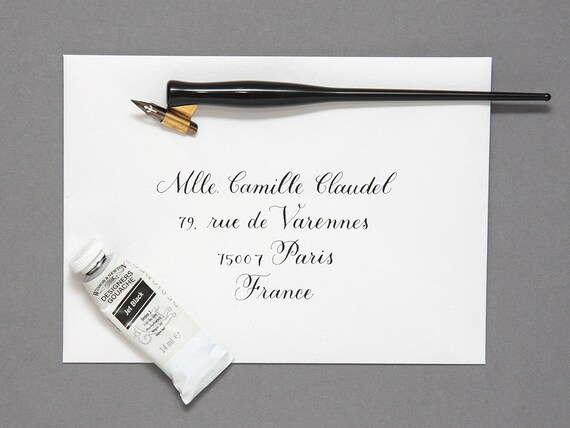 Mlle. Camille Claudel
79, rue de Varennes
75007 Paris
France
WINSOR & NEWTON
DESIGNERS
GOUACHE
Jet Black
14 ml e